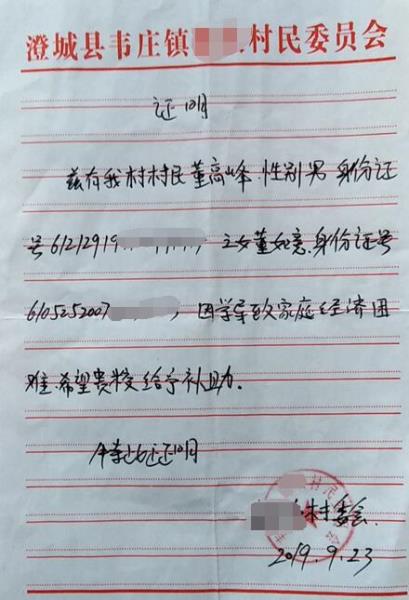 澄城县韦庄镇 村民委员会
证明
兹有我村村民董高峰.性别男.身份证
号61212919 之女董如意.身份证号
6105252007 ，因学导致家庭经济困
难.希望贵校给予补助.
特此证明
村委会.
2019.9.23